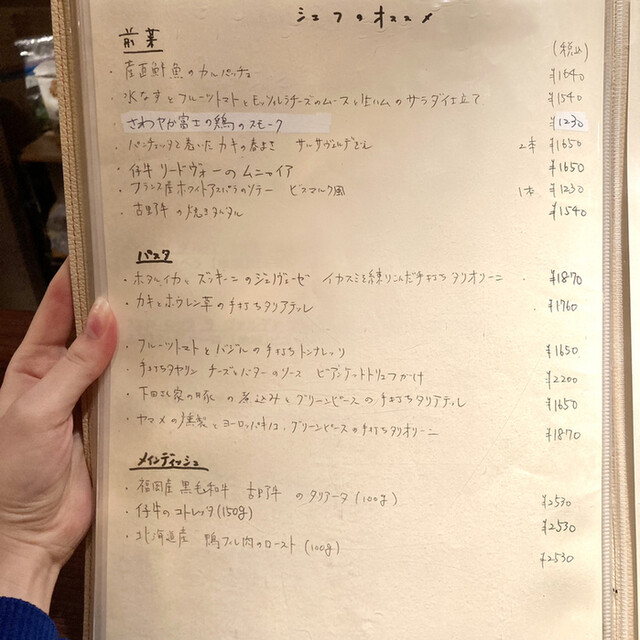 シェフのオススメ
前菜
(税込)
・産直鮮魚のカルパッチョ ¥1640
・水なすとフルーツトマトとモッツァレラチーズのムースと生ハムのサラダ仕立て ¥1540
・さわやか富士の鶏のスモーク ¥1230
・パンチェッタで巻いたカキの香よさ サルサヴェルデ 2本 ¥1650
・仔牛 リードヴォーのムニィア ¥1650
・フランス産ホワイトアスパラのソテー ビスマルク風 1本 ¥1230
・古野牛の焼きタルタル ¥1540
パスタ
・ホタルイカとズッキーニのジェノヴェーゼ イカスミを練りこんだ手打ちタリオリーニ ¥1870
・カキとホウレン草の手打ちタリアテッレ ¥1760
・フルーツトマトとバジルの手打ちトンナレッリ ¥1650
・手打ちタヤリン チーズとバターのソース ビアンケットトリュフがけ ¥2200
・下田さん家の豚の煮込みとグリーンピースの手打ちタリアテッレ ¥1650
・ヤマメの燻製とヨーロッパキノコ、グリーンピースの手打ちタリオリーニ ¥1870
メインディッシュ
・福岡産黒毛和牛 古野牛のタリアータ(100g) ¥2530
・仔牛のコトレッタ(150g) ¥2530
・北海道産 鴨フィレ肉のロースト(100g) ¥2530